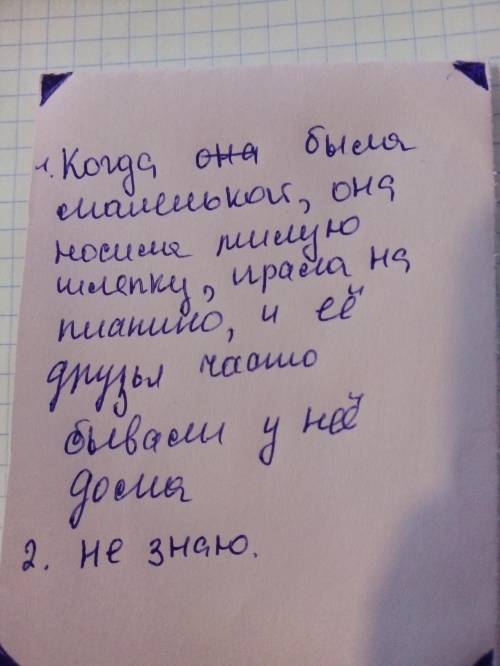 1. Когда она была
маленькой, она
носила милую
шляпку, играла на
пианино, и её
друзья часто
бывали у неё
дома
2. не знаю.